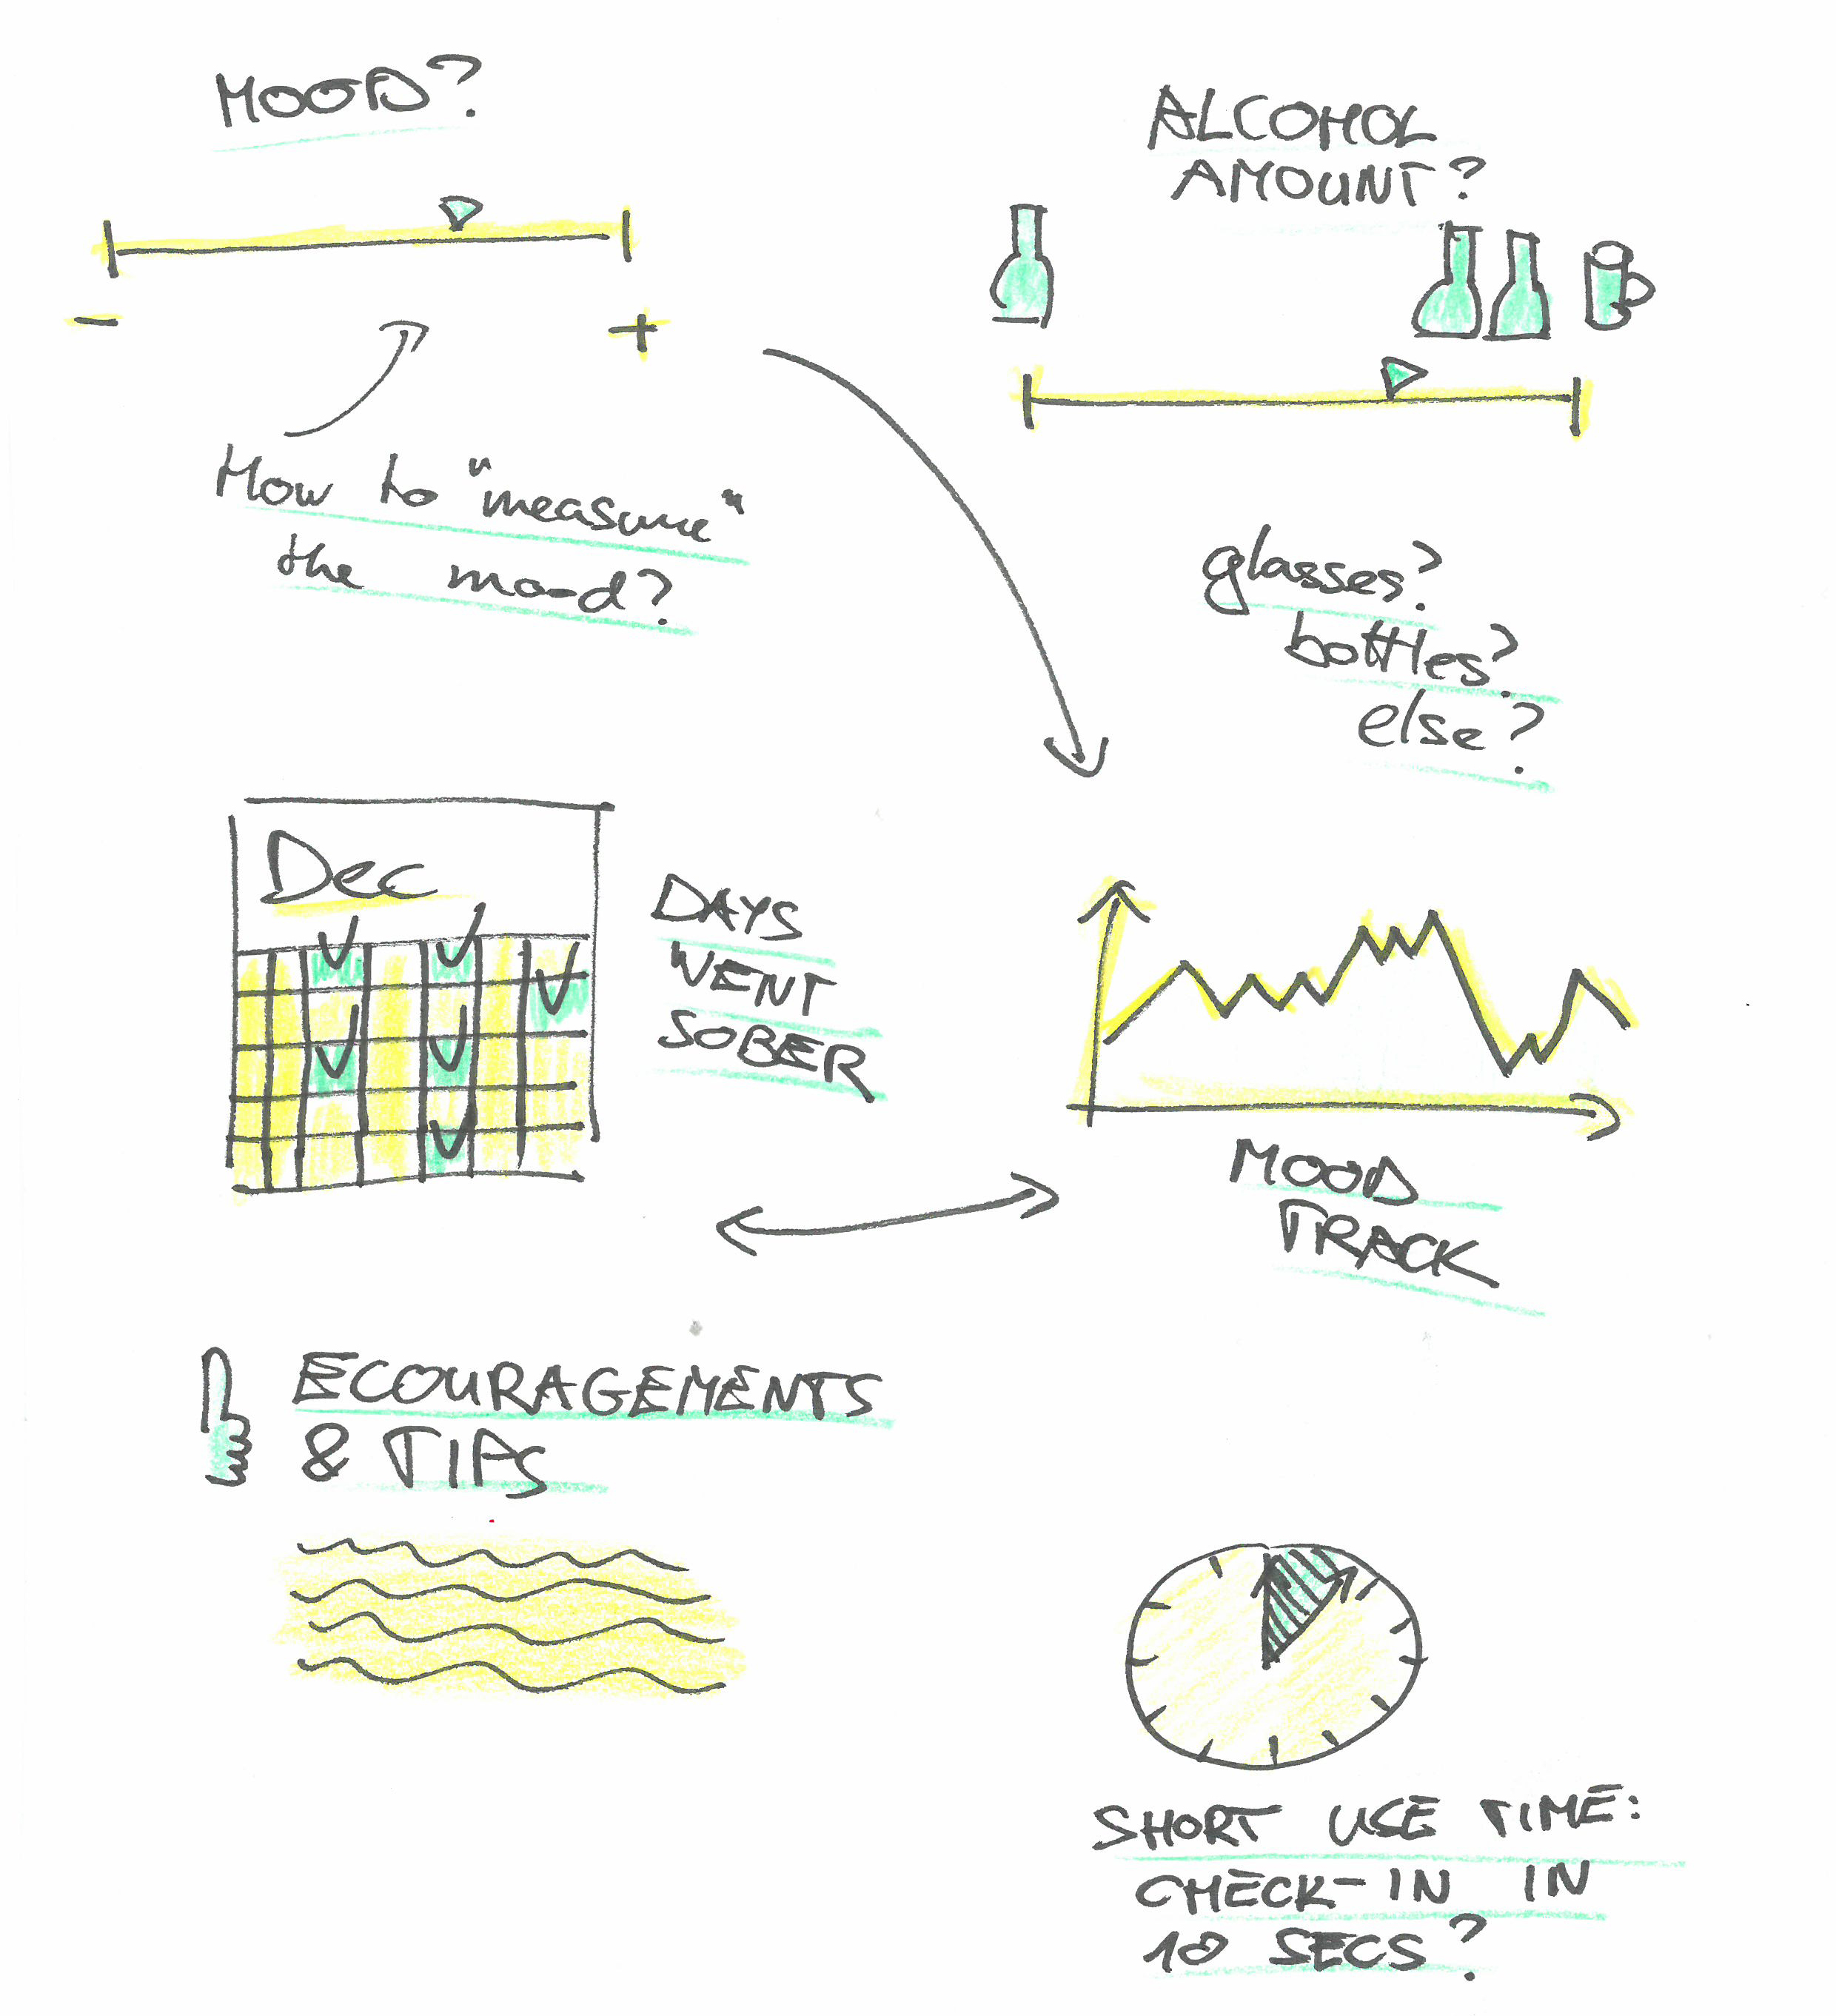 MOOD?
- +
How to "measure"
the mood?
ALCOHOL
AMOUNT?
glasses?
bottles?
else?
Dec
DAYS
WENT
SOBER
MOOD
TRACK
ECOURAGEMENTS
& TIPS
SHORT USE TIME:
CHECK-IN IN
10 SECS?